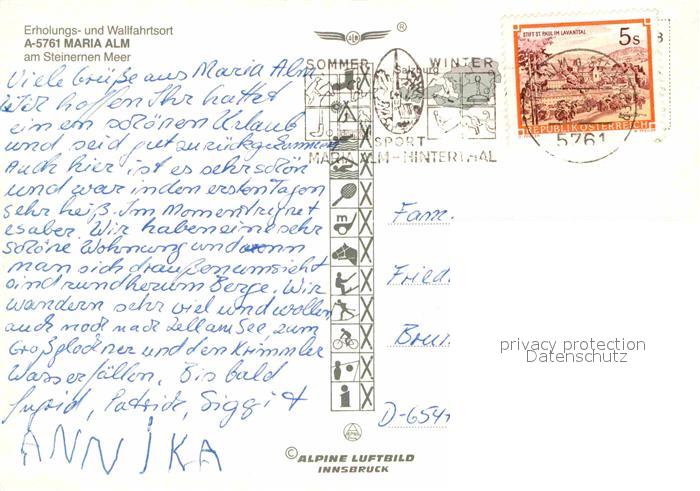 Erholungs- und Wallfahrtsort
A-5761 MARIA ALM
am Steinernen Meer
Viele Grüße aus Maria Alm.
Wir hoffen Ihr hattet
einen schönen Urlaub
und seid gut zurückgekommen
Auch hier ist es sehr schön
und war in den ersten Tagen
sehr heiß. Im Moment regnet
es aber. Wir haben eine sehr
schöne Wohnung und wenn
man sich draußen umsieht
sind rundherum Berge. Wir
wandern sehr viel und wollen
auch noch nach Zell am See, zum
Großglockner und den Krimmler
Wasserfällen. Bis bald
Ingrid, Patrick, Siggi +
ANNIKA
ALM
®
SOMMER WINTER
Salzburg
SPORT
MARIA ALM-HINTERTHAL
STIFT ST. PAUL IM LAVANTTAL
5s
REPUBLIK ÖSTERREICH
5761
m
i
Fam.
Fried.
D-654
privacy protection
Datenschutz
© ALPINE LUFTBILD
INNSBRUCK